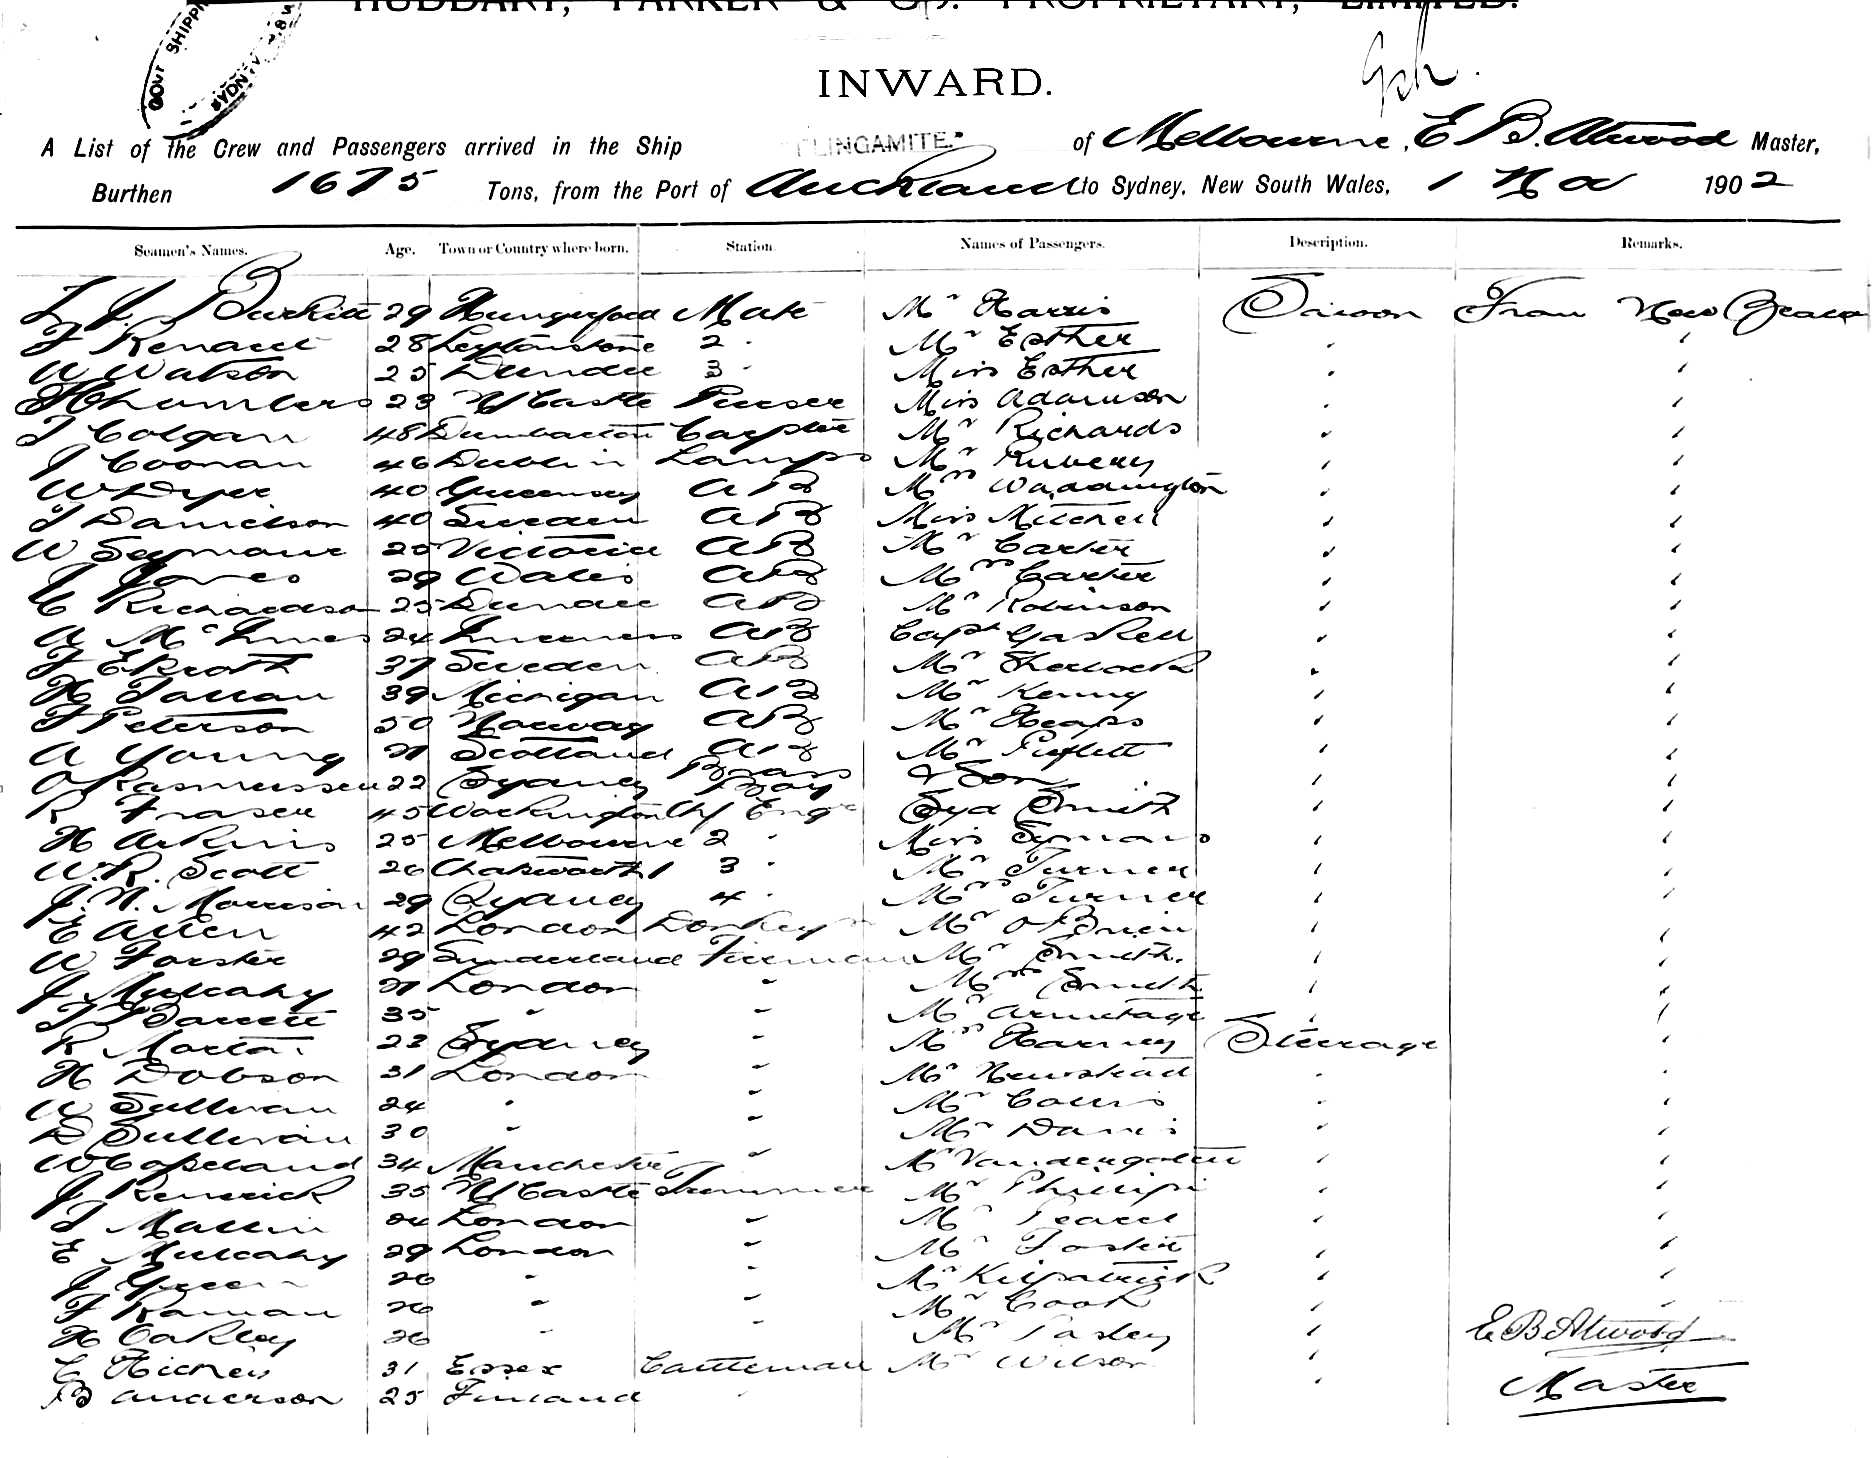 HUDDART, PARKER & Co. PROPRIETARY, LIMITED.
GOVT SHIPPI
SYDNEY
INWARD.
A List of the Crew and Passengers arrived in the Ship "ELINGAMITE." of Melbourne, E B. Atwood Master,
Burthen 1675 Tons, from the Port of Auckland to Sydney, New South Wales, 1 Nov 1902
Seamen's Names. Age. Town or Country where born. Station. Names of Passengers. Description. Remarks.
L J. Burkitt 29 Hungerford Mate Mr Harris Saloon From New Zealand
F Renaut 28 Leytonstone 2 " Mr Esther " "
W Watson 25 Dundee 3 " Miss Esther " "
Chambers 23 N/Castle Purser Miss Adamson " "
J Colgan 48 Dumbarton Carpter Mr Richards " "
J Coonan 46 Dublin Lamps Mr Rubery " "
W Dyer 40 Guernsey AB Mrs Waddington " "
J Danielson 40 Sweden AB Miss Mitchell " "
W Seymour 25 Victoria AB Mr Carter " "
J Jones 29 Wales AB Mrs Carter " "
C Richardson 25 Dundee AB Mr Robinson " "
A McInnes 24 Inverness AB Capt Gaskell " "
F Ekroth 37 Sweden AB Mr Sherlock " "
H 39 Michigan AB Mr Kenny " "
J Peterson 50 Norway AB Mr Heaps " "
A Young 21 Scotland AB Mr " "
O Rasmussen 22 Sydney Brass Boy & Son " "
R Fraser 45 Workington Chf Engr Syd Smith " "
H Arkins 25 Melbourne 2 " Miss Symons " "
W. R. Scott 26 3 " Mr Turner " "
J. N. Morrison 29 Sydney 4 " Mrs Turner " "
E Allen 42 London Donkeyn Mr O'Brien " "
W Forster 29 Sunderland Fireman Mr Smith. " "
J Mulcahy 21 London " Mrs Smith " "
J Barrett 35 " " Mr Armitage " "
R Morton 23 Sydney " Mr Harvey Steerage "
H Dobson 31 London " Mr Newstead " "
W Sullivan 24 " " Mr Collis " "
D Sullivan 30 " " Mr Davis " "
W Copeland 34 Manchester " Mr " "
J Renwick 35 N/Castle Trimmer Mr Phillips " "
J 24 London " Mr Pearce " "
E Mulcahy 29 London " Mr Foster " "
J Green 26 " " Mr Kilpatrick " "
F 26 " " Mr Cook " "
H Oakley 26 " " Mr Pasley " E. B Atwood
C 31 Essex Cattleman Mr Wilson "
B Anderson 25 Finland " " Master